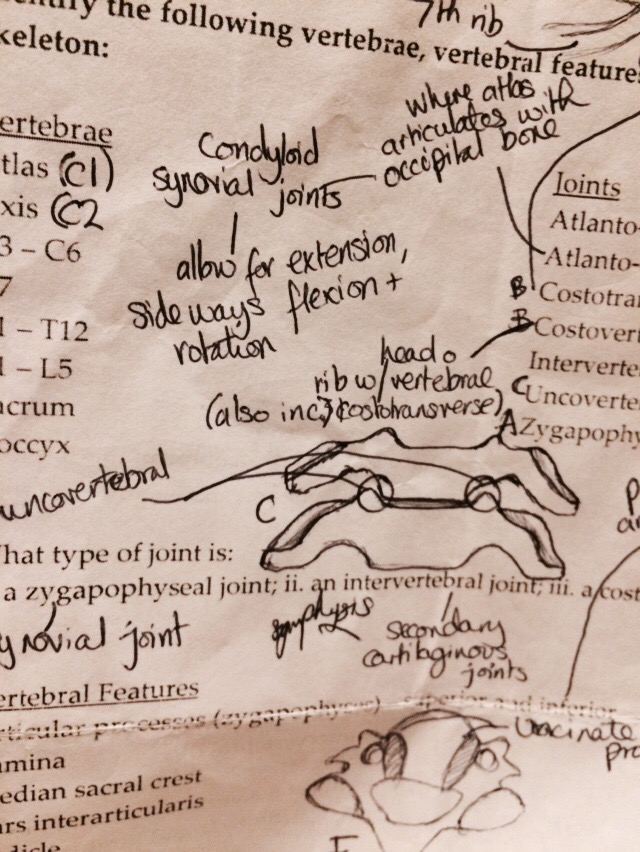 7th rib
the following vertebrae, vertebral feature
keleton:
ertebrae
tlas (C1)
xis (C2
3 – C6
7
1 – T12
1 – L5
acrum
occyx
Condyloid
synovial joints
where atlas
articulates with
occipital bone
allow for extension,
sideways flexion +
rotation
Joints
Atlanto-
Atlanto-
B Costotra
B Costovert
Interverte
C Uncoverte
A Zygapophy
head o
rib w/vertebrae
(also inc. costotransverse)
uncovertebral
C
hat type of joint is:
a zygapophyseal joint; ii. an intervertebral joint; iii. a cost
ynovial joint
symphysis
secondary
cartilaginous
joints
ertebral Features
rticular processes (zygapophyses) - superior and inferior
amina
edian sacral crest
ars interarticularis
edicle
Uncinate
pro